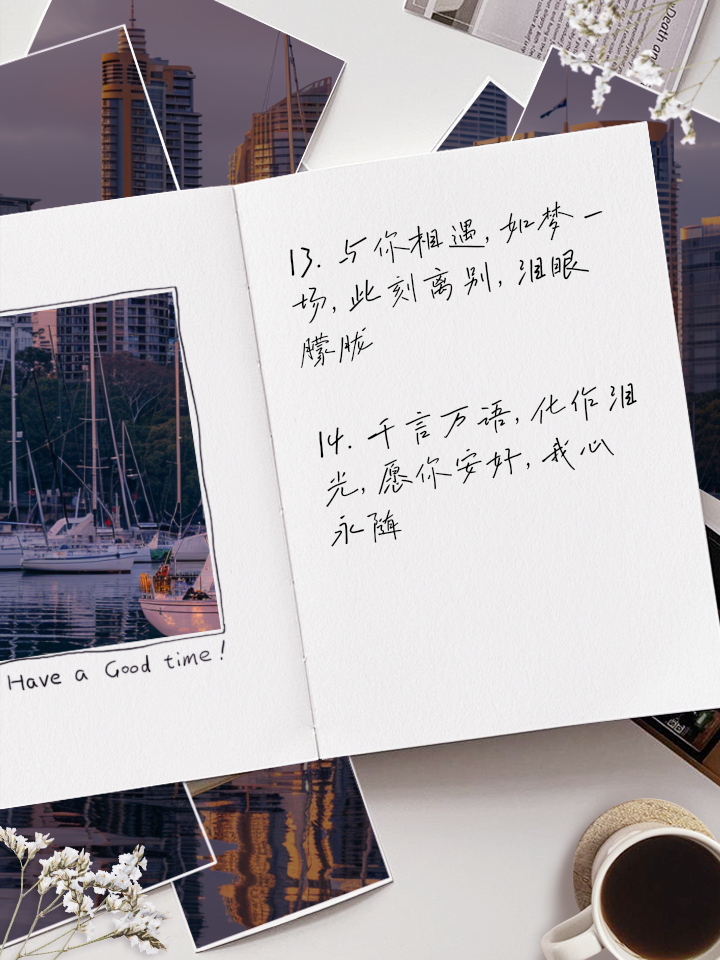 Death an
13. 与你相遇, 如梦一
场, 此刻离别, 泪眼
朦胧
14. 千言万语, 化作泪
光, 愿你安好, 我心
永随
Have a Good time!